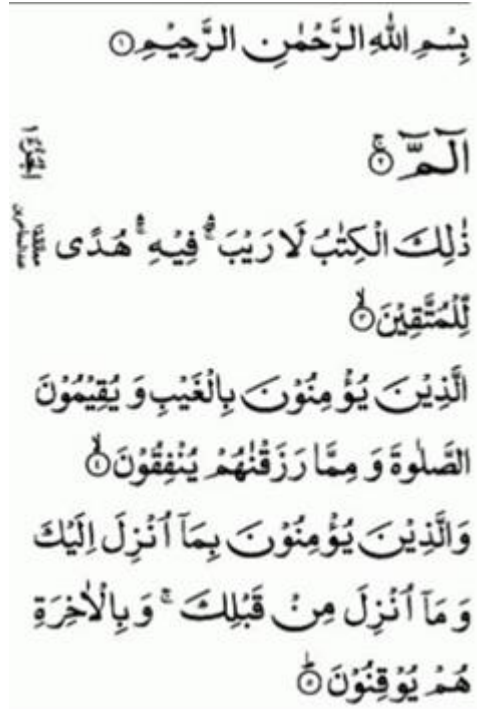 بِسۡمِ اللّٰهِ الرَّحۡمٰنِ الرَّحِيۡمِ ۝۱
الٓـمّٓ ۚ ۝۲
ذٰلِكَ الۡكِتٰبُ لَا رَيۡبَ ۛ فِيۡهِ ۛ هُدًى
لِّلۡمُتَّقِيۡنَ ۙ ۝۳
الَّذِيۡنَ يُؤۡمِنُوۡنَ بِالۡغَيۡبِ وَ يُقِيۡمُوۡنَ
الصَّلٰوةَ وَ مِمَّا رَزَقۡنٰهُمۡ يُنۡفِقُوۡنَ ۙ ۝۴
وَالَّذِيۡنَ يُؤۡمِنُوۡنَ بِمَاۤ اُنۡزِلَ اِلَيۡكَ
وَ مَاۤ اُنۡزِلَ مِنۡ قَبۡلِكَ ۚ وَ بِالۡاٰخِرَةِ
هُمۡ يُوۡقِنُوۡنَ ؕ ۝۵